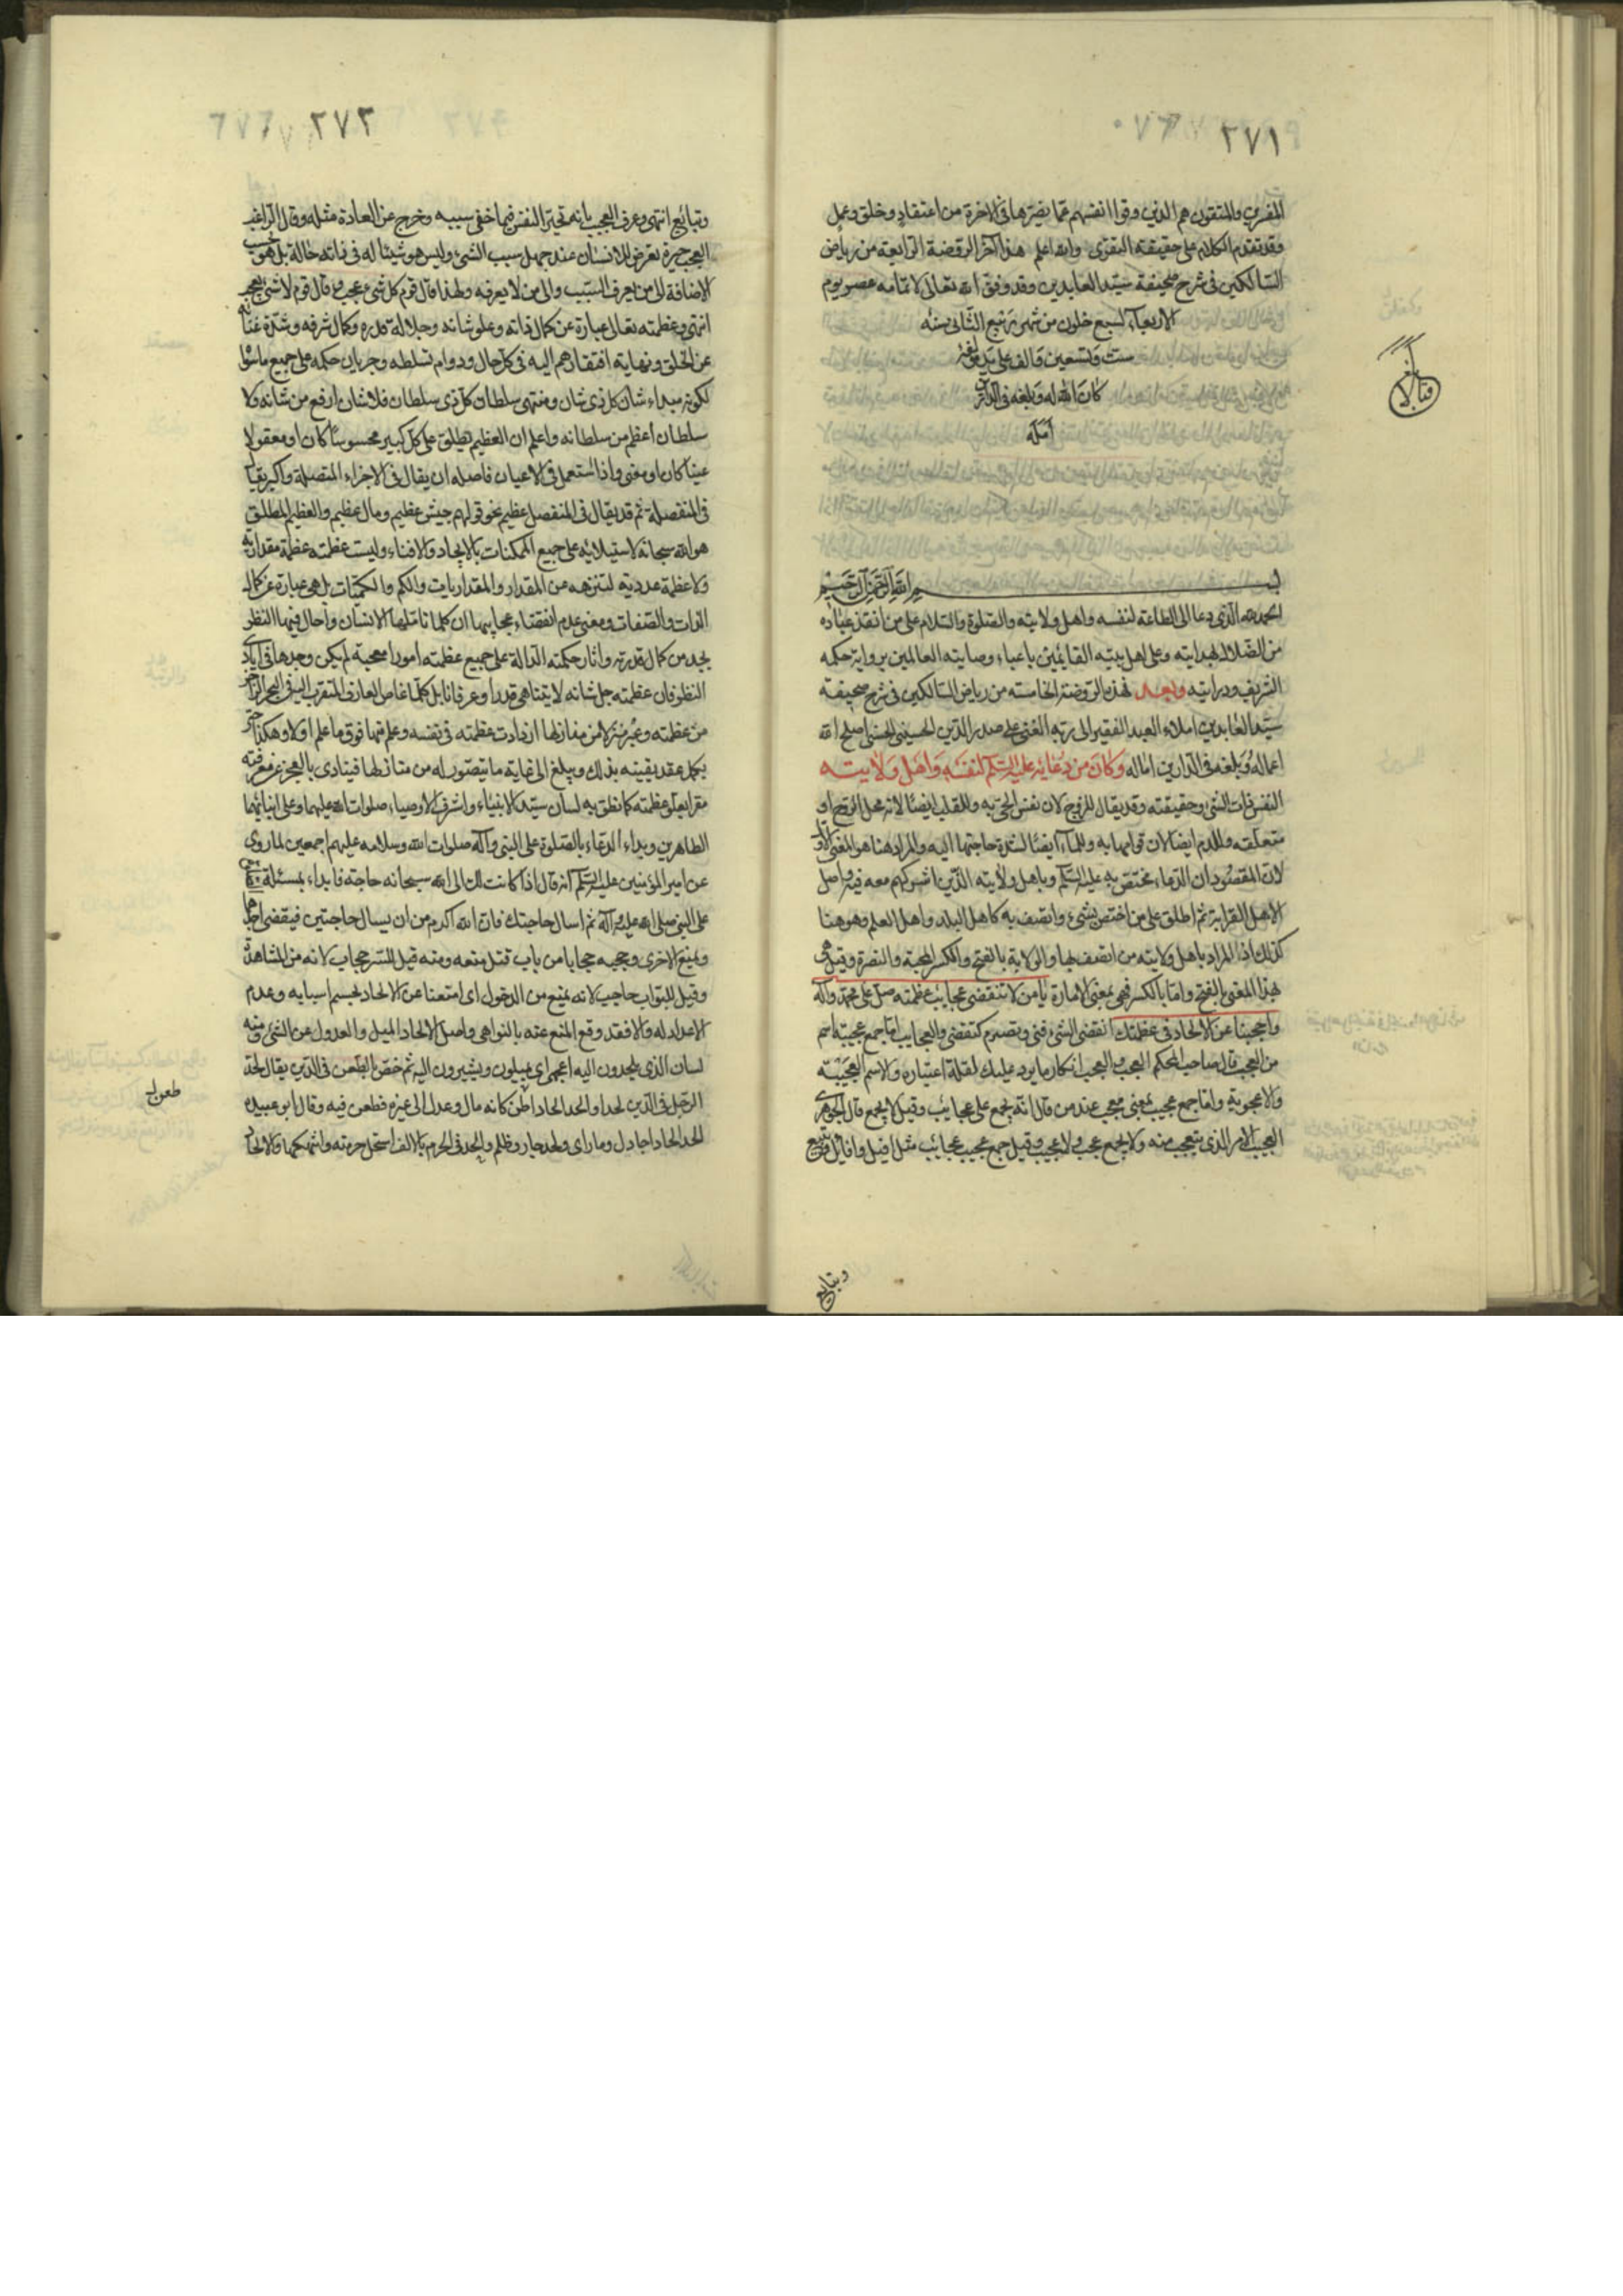 ٢٧١
المفسرين والمتقون هم الذين وقوا انفسهم عما يضرها فى الاخرة من اعتقاد وخلق وعمل
وقد تقدم الكلام على حقيقة التقوى والله اعلم هذا آخر الروضة الرابعة من رياض
السالكين فى شرح صحيفة سيد العابدين وقد وفق الله تعالى لاتمامه عصر يوم
الاربعاء لسبع خلون من شهر ربيع الثانى سنه
ست وتسعين والف على يد مؤلفه
كان الله له وبلغه فى الدارين
امله
بسم الله الرحمن الرحيم
الحمد لله الذى دعا الى الطاعة لنفسه واهل ولايته والصلوة والسلام على من انقذ عباده
من الضلال بهدايته وعلى اهل بيته القايمين باعباء وصايته العالمين برواية حكمه
الشريف ودرايته وبعد فهذه الروضة الخامسة من رياض السالكين فى شرح صحيفة
سيد العابدين املاء العبد الفقير الى ربه الغنى على صدر الدين الحسينى الحسنى اصلح الله
اعماله وبلغه فى الدارين اماله وكان من دعائه عليه السلم لنفسه واهل ولايته
النفس ذات الشئ وحقيقته وقد يقال للروح لان نفس الحى به وللقلب ايضا لانه محل الروح او
متعلقه وللدم ايضا لان قوامها به وللماء ايضا لشدة حاجتها اليه والمراد هنا هو المعنى الاول
لان المقصود ان الدعاء مختص به عليه السلم وباهل ولايته الذين اشركهم معه فيه واصل
الاهل القرابة ثم اطلق على من اختص بشئ واتصف به كاهل البلد واهل العلم وهو هنا
كذلك اذ المراد باهل ولايته من اتصف بها والولاية بالفتح والكسر المحبة والنصرة وقيل هى
بهذا المعنى بالفتح واما بالكسر فهى بمعنى الامارة يا من لا تنقضى عجايب عظمته صل على محمد وآله
واحجبنا عن الالحاد فى عظمتك انقضى الشئ فنى وتصرم كتقضى والعجايب اما جمع عجيبة اسم
من العجب قال صاحب المحكم العجب والعجب انكار ما يرد عليك لقلة اعتياده والاسم العجيبة
والاعجوبة واما جمع عجيب بمعنى معجب عند من قال انه يجمع على عجائب وقيل لا يجمع قال الجوهرى
العجيب الامر الذى يتعجب منه ولا يجمع عجب ولا عجيب وقيل جمع عجيب عجائب مثل افيل وافائل وتبيع
وتبايع
٢٧٢
وتبائع انتهى وعرف العجب بانه تحير النفس فيما خفى سببه وخرج عن العادة مثله وقال الراغب
العجب حيرة تعرض للانسان عند جهل سبب الشئ وليس هو شيئا له فى ذاته حالة بل هو بحسب
الاضافة الى من يعرف السبب والى من لا يعرفه ولهذا قال قوم كل شئ عجب وقال قوم لا شئ بعجب
انتهى وعظمته تعالى عبارة عن كمال ذاته وعلو شانه وجلالة قدره وكمال شرفه وشدة غنائه
عن الخلق ونهاية افتقادهم اليه فى كل حال ودوام تسلطه وجريان حكمه على جميع ما سواه
لكونه مبداء شان كل ذى شان ومنتهى سلطان كل ذى سلطان فلا شان ارفع من شانه ولا
سلطان اعظم من سلطانه واعلم ان العظيم يطلق على كل كبير محسوسا كان او معقولا
عينا كان او معنى واذا استعمل فى الاعيان فاصله ان يقال فى الاجزاء المتصلة والكبير يقال
فى المنفصلة ثم قد يقال فى المنفصل عظيم نحو قولهم جيش عظيم ومال عظيم والعظيم المطلق
هو الله سبحانه لاستيلائه على جميع الممكنات بالايجاد والافناء وليست عظمته عظمة مقدارية
ولا عظمة عددية لتنزهه عن المقدار والمقداريات والكم والكميات بل هى عبارة عن كمال
الذات والصفات ومعنى عدم انقضاء عجايبها ان كلما تاملها الانسان واجال فيها النظر
يجد من كمال قدرته واثار حكمته الدالة على جميع عظمته امورا عجيبة لم يكن وجدها فى اباد
النظر فان عظمته جل شانه لا يتناهى قدرا وعرفانا بل كلما غاص العارف المتقرب اليه فى البحر الزاخر
من عظمته وعبر منزلا من منازلها ازدادت عظمته فى نفسه وعلم منها فوق ما علم اولا وهكذا حتى
يكمل عقد يقينه بذلك ويبلغ الى غاية ما يتصور له من منازلها فينادى بالعجز عن معرفته
مقرا بعلو عظمته كما نطق به لسان سيد الانبياء واشرف الاوصياء صلوات الله عليهما وعلى ابنائهما
الطاهرين وبداء الدعاء بالصلوة على النبى وآله صلوات الله وسلامه عليهم اجمعين لما روى
عن امير المؤمنين عليه السلم انه قال اذا كانت لك الى الله سبحانه حاجة فابداء بمسئلة
على النبى صلى الله عليه وآله ثم اسال حاجتك فان الله اكرم من ان يسال حاجتين فيقضى احدهما
ويمنع الاخرى وحجبه حجابا من باب قتل منعه ومنه قيل للستر حجاب لانه من المشاهدة
وقيل للبواب حاجب لانه يمنع من الدخول اى امنعنا عن الالحاد بحسم اسبابه وعدم
الاعداد له والا فقد وقع المنع عنه بالنواهى واصل الالحاد الميل والعدول عن الشئ ومنه
لسان الذى يلحدون اليه اعجمى اى يميلون ويشيرون اليه ثم خص بالطعن فى الدين يقال لحد
الرجل فى الدين لحدا والحد الحادا طعن كانه مال وعدل الى غيره فطعن فيه وقال ابو عبيده
الحد الحادا جادل ومارى ولحد جار وظلم والحد فى الحرم بالالف استحل حرمته وانتهكها والالحاد
طعول